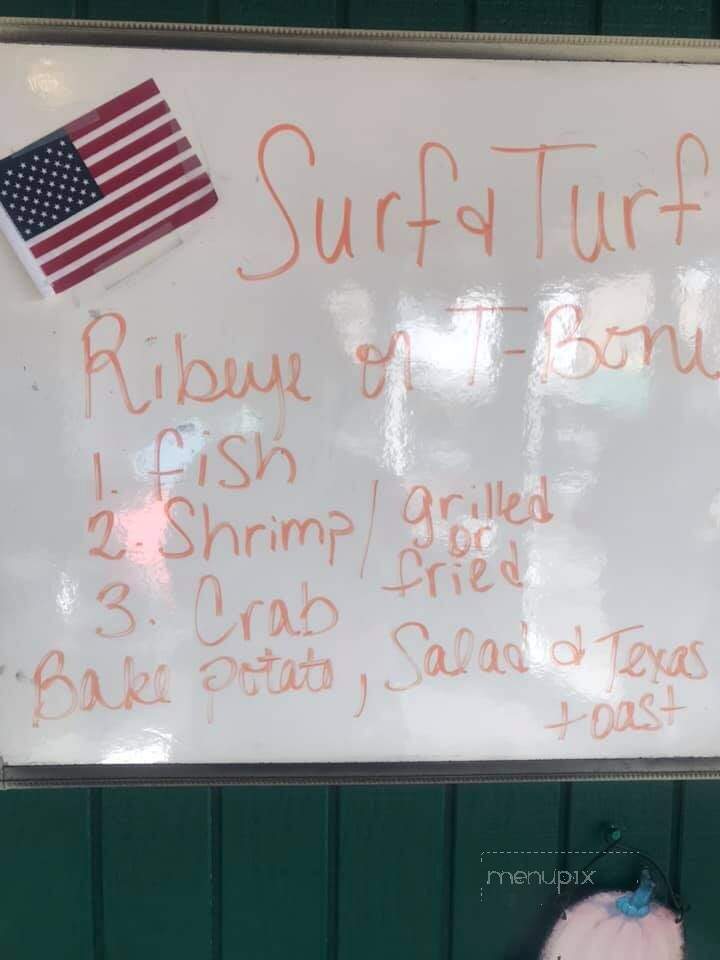 Surf & Turf
Ribeye or T-Bone
1. fish
2. Shrimp / grilled
or
fried
3. Crab
Bake potato, Salad & Texas
toast
menupix